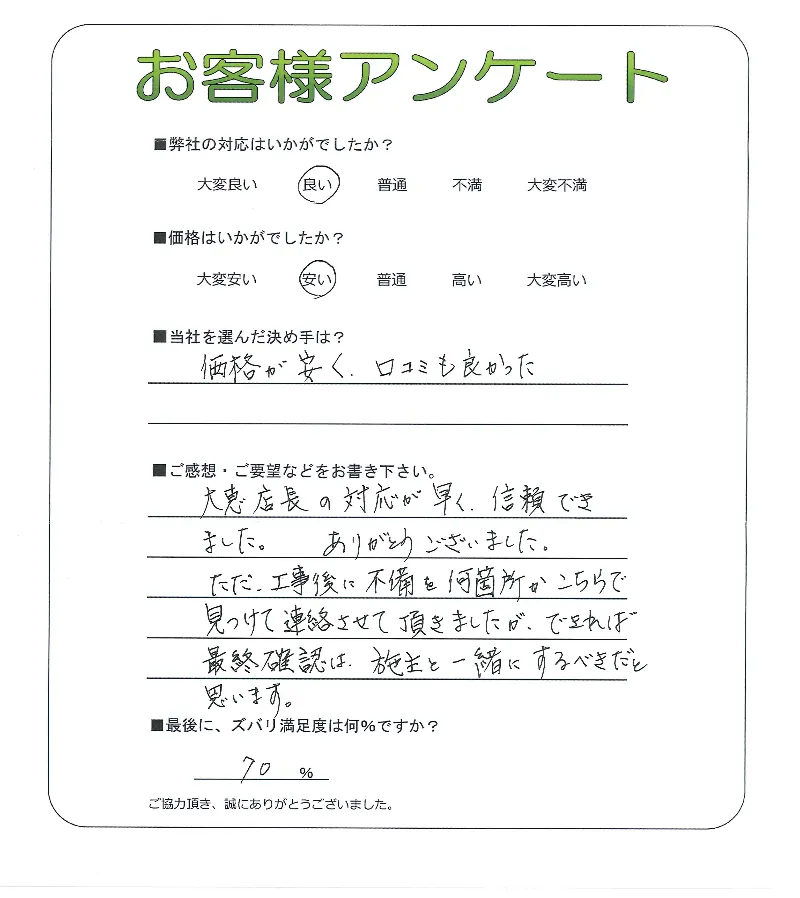 お客様アンケート
■弊社の対応はいかがでしたか？
大変良い 良い 普通 不満 大変不満
■価格はいかがでしたか？
大変安い 安い 普通 高い 大変高い
■当社を選んだ決め手は？
価格が安く、口コミも良かった
■ご感想・ご要望などをお書き下さい。
大恵店長の対応が早く、信頼でき
ました。 ありがとうございました。
ただ、工事後に不備を何箇所かこちらで
見つけて連絡させて頂きましたが、できれば
最終確認は、施主と一緒にするべきだと
思います。
■最後に、ズバリ満足度は何％ですか？
70 %
ご協力頂き、誠にありがとうございました。